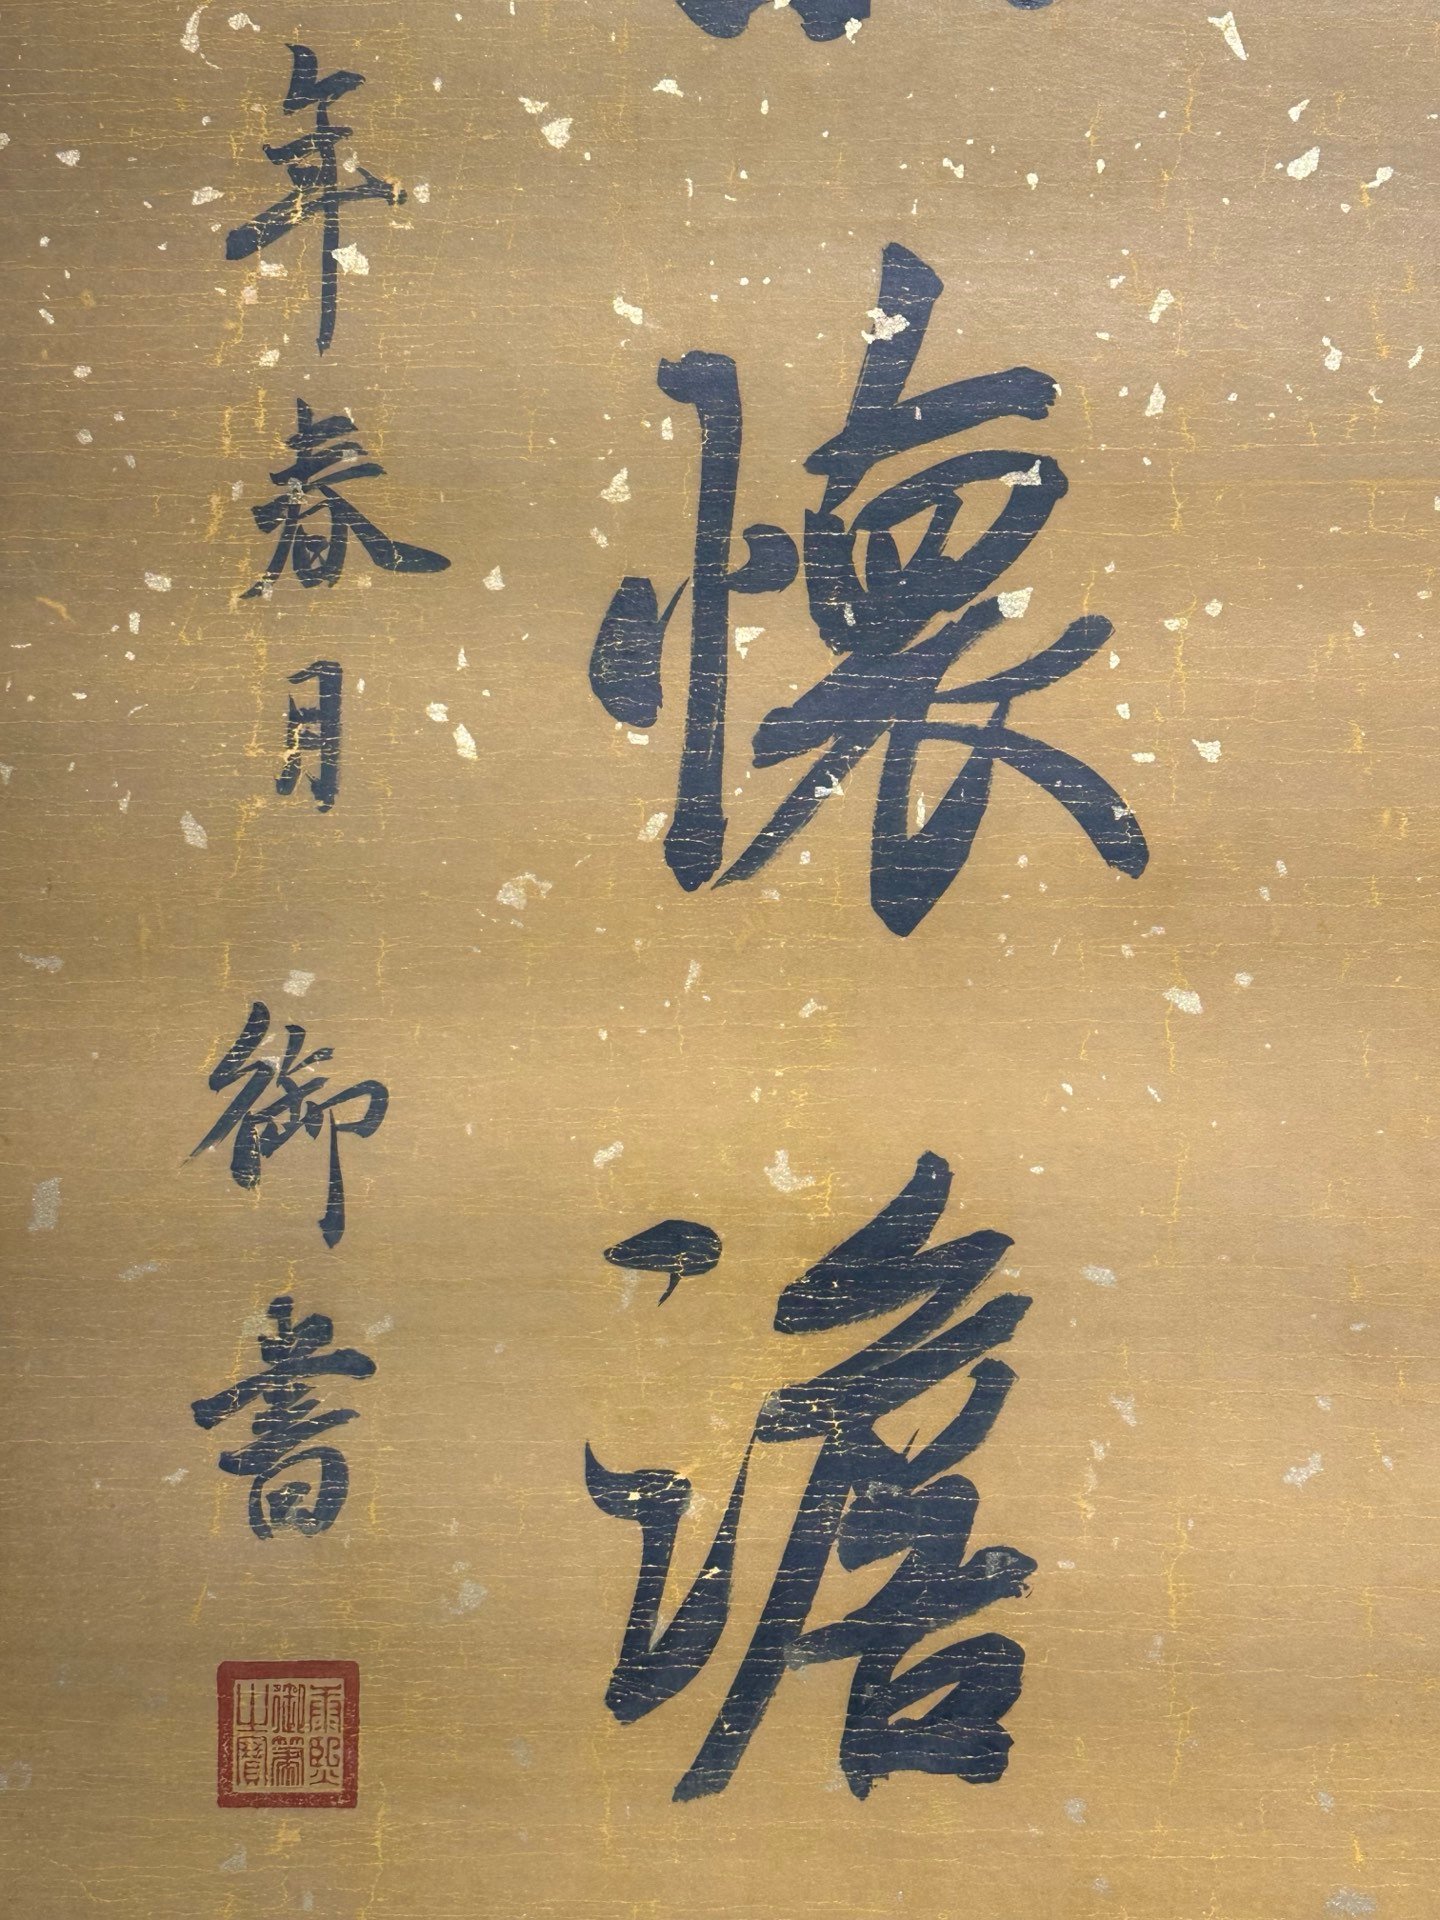 懷澹
年春月御書
康熙御筆之寶